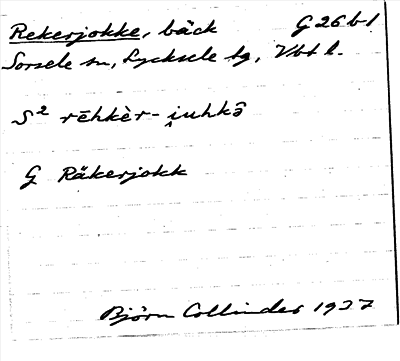 Rekerjokke, bäck G 26 b 1
Sorsele sn, Lycksele tg, Vbt l.
S² rēhkèr-i̯uhkō̂
G Räkerjokk
Björn Collinder 1937